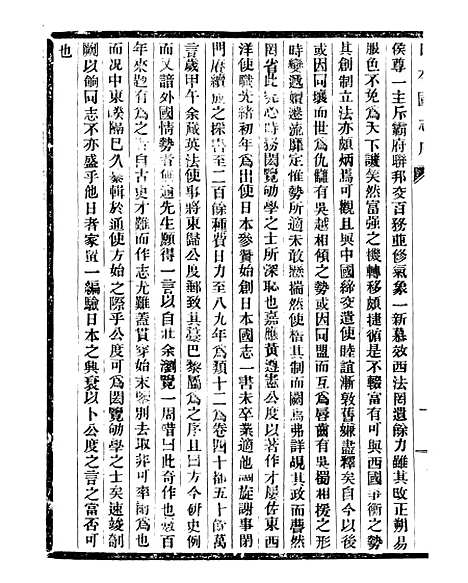 侯尊一主斥霸府聯邦交百務並修氣象一新慕效西法罔遺餘力雖其改正朔易
服色不免為天下譏笑然富強之機轉移頗捷循是不輟當有可與西國爭衡之勢
其創制立法亦頗炳焉可觀且與中國締交遣使睦誼漸敦舊嫌盡釋矣自今以後
或因同壤而世為仇讎有吳越相傾之勢或因同盟而互為唇齒有吳蜀相援之形
時變遞嬗遷流靡定惟勢所適未敢懸揣然使稽其制而闕焉弗詳覘其政而瞢然
罔省此究心時務閎覽劬學之士所深恥也嘉應黃遵憲公度以著作才屢佐東西
洋使職光緒初年為出使日本參贊始創日本國志一書未卒業適他調旋謝事閉
門賡續成之採書至二百餘種費日力至八九年為類十二為卷四十都五十餘萬
言歲甲午余蕆英法使事將東歸公度郵致其稾巴黎屬為之序且曰方今研史例
而又諳外國情勢者無逾先生願得一言以自壯余瀏覽一周喟曰此奇作也數百
年來尠有為之者自古史才難而作志尤難蓋貫穿始末鑒別去取非可率爾為也
而況中東暌隔已久纂輯於通使方始之際乎公度可為閎覽劬學之士矣速竣剞
劂以餉同志不亦盛乎他日者家置一編驗日本之興衰以卜公度之言之當否可
也